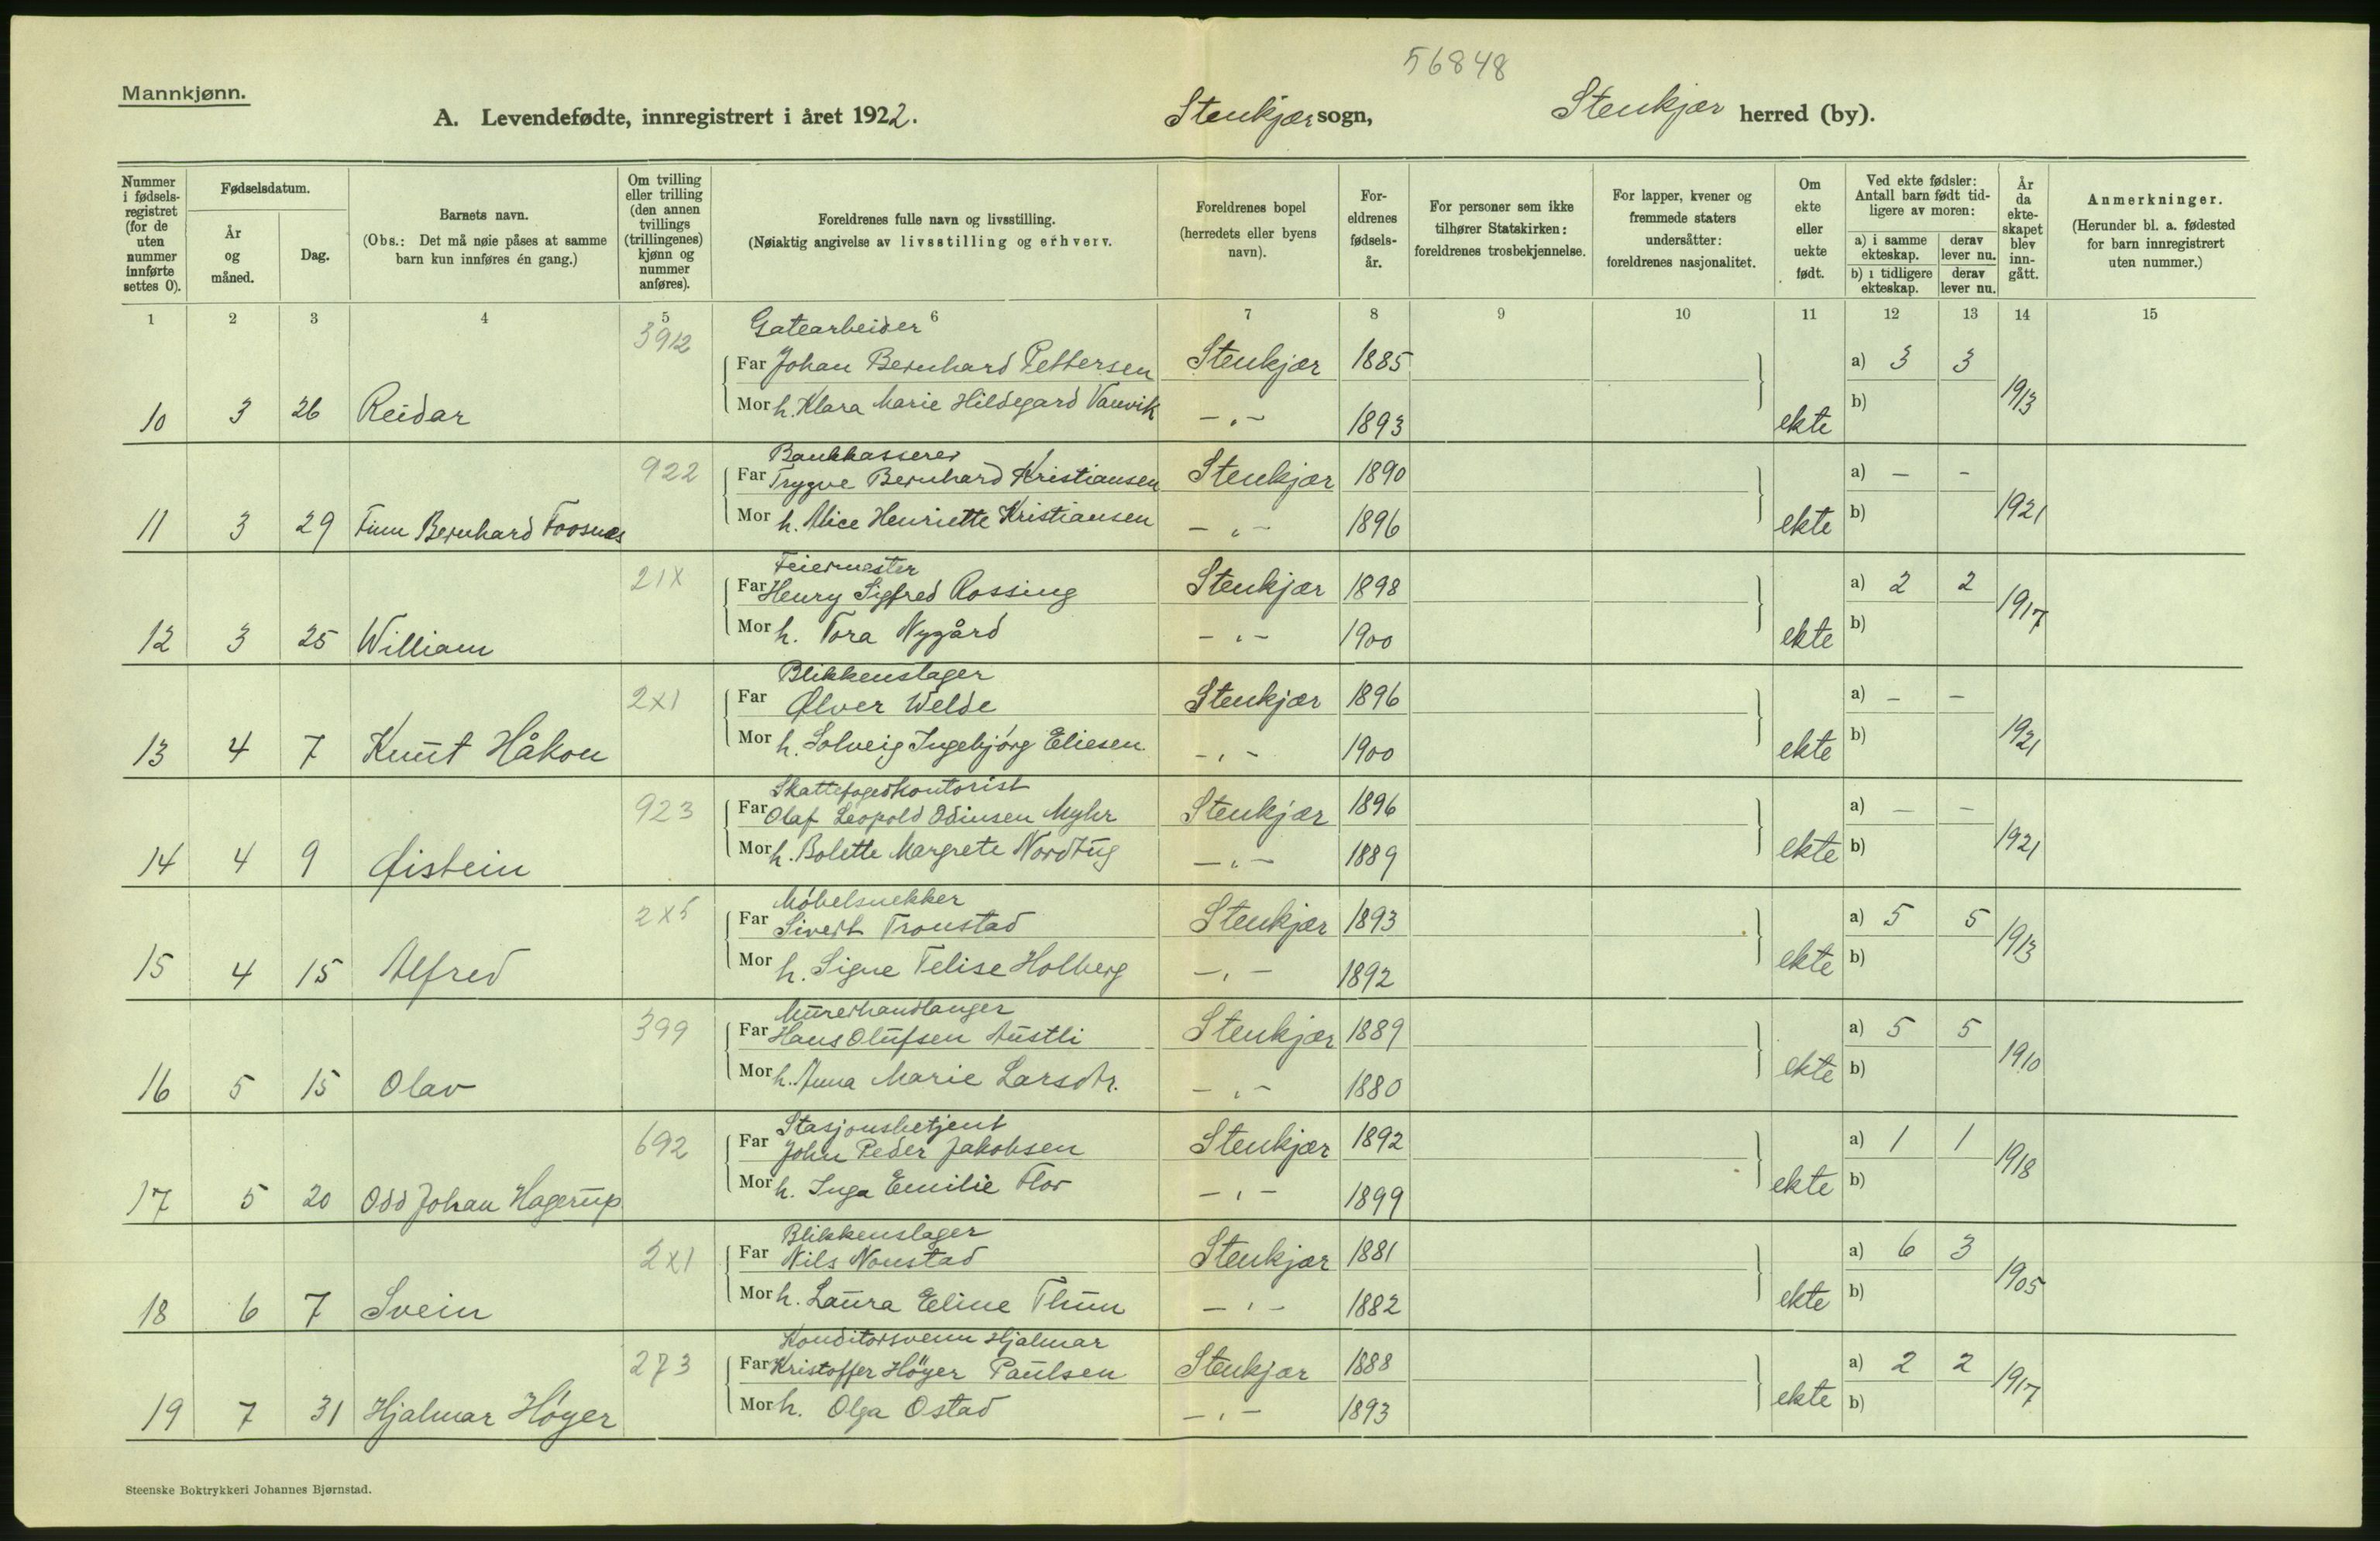 56848
Mannkjønn.
A. Levendefødte, innregistrert i året 1922. Stenkjær sogn, Stenkjær herred (by).
Nummer i fødsels-registret (for de uten nummer innførte settes 0).
Fødselsdatum.
År og måned.
Dag.
Barnets navn.
(Obs.: Det må nøie påses at samme barn kun innføres én gang.)
Om tvilling eller trilling (den annen tvillings (trillingenes) kjønn og nummer anføres).
Foreldrenes fulle navn og livsstilling.
(Nøiaktig angivelse av livsstilling og erhverv.
Foreldrenes bopel (herredets eller byens navn).
For-eldrenes fødsels-år.
For personer som ikke tilhører Statskirken: foreldrenes trosbekjennelse.
For lapper, kvener og fremmede staters undersåtter: foreldrenes nasjonalitet.
Om ekte eller uekte født.
Ved ekte fødsler: Antall barn født tid-ligere av moren:
a) i samme ekteskap. derav lever nu.
b) i tidligere ekteskap. derav lever nu.
År da ekte-skapet blev inn-gått.
Anmerkninger.
(Herunder bl. a. fødested for barn innregistrert uten nummer.)
1 2 3 4 5 6 7 8 9 10 11 12 13 14 15
3912 Gatearbeider
Far Johan Bernhard Pettersen Stenkjær 1885 a) 3 3
10 3 26 Reidar Mor h. Klara Marie Hildegard Vanvik -"- 1893 ekte b) 1913
922 Bankkasserer
Far Trygve Bernhard Kristiansen Stenkjær 1890 a) - -
11 3 29 Finn Bernhard Foosnæs Mor h. Alice Henriette Kristiansen -"- 1896 ekte b) 1921
21X Feiermester
Far Henry Sigfred Rossing Stenkjær 1898 a) 2 2
12 3 25 William Mor h. Tora Nygård -"- 1900 ekte b) 1917
2X1 Blikkenslager
Far Ølver Welde Stenkjær 1896 a) - -
13 4 7 Knut Håkon Mor h. Solveig Ingebjørg Eliesen -"- 1900 ekte b) 1921
923 Skattefogedkontorist
Far Olaf Leopold Odinsen Myhr Stenkjær 1896 a) - -
14 4 9 Øistein Mor h. Bolette Margrete Nordtug -"- 1889 ekte b) 1921
2X5 Møbelsnekker
Far Sivert Tronstad Stenkjær 1893 a) 5 5
15 4 15 Alfred Mor h. Signe Telise Holberg -"- 1892 ekte b) 1913
399 Murerhandlanger
Far Hans Olufsen Austli Stenkjær 1889 a) 5 5
16 5 15 Olav Mor h. Anna Marie Larsdtr. -"- 1880 ekte b) 1910
692 Stasjonsbetjent
Far John Peder Jakobsen Stenkjær 1892 a) 1 1
17 5 20 Odd Johan Hagerup Mor h. Inga Emilie Flor -"- 1899 ekte b) 1918
2X1 Blikkenslager
Far Nils Nonstad Stenkjær 1881 a) 6 3
18 6 7 Svein Mor h. Laura Eline Thun -"- 1882 ekte b) 1905
273 Konditorsvenn Hjalmar
Far Kristoffer Høyer Paulsen Stenkjær 1888 a) 2 2
19 7 31 Hjalmar Høyer Mor h. Olga Ostad -"- 1893 ekte b) 1917
Steenske Boktrykkeri Johannes Bjørnstad.